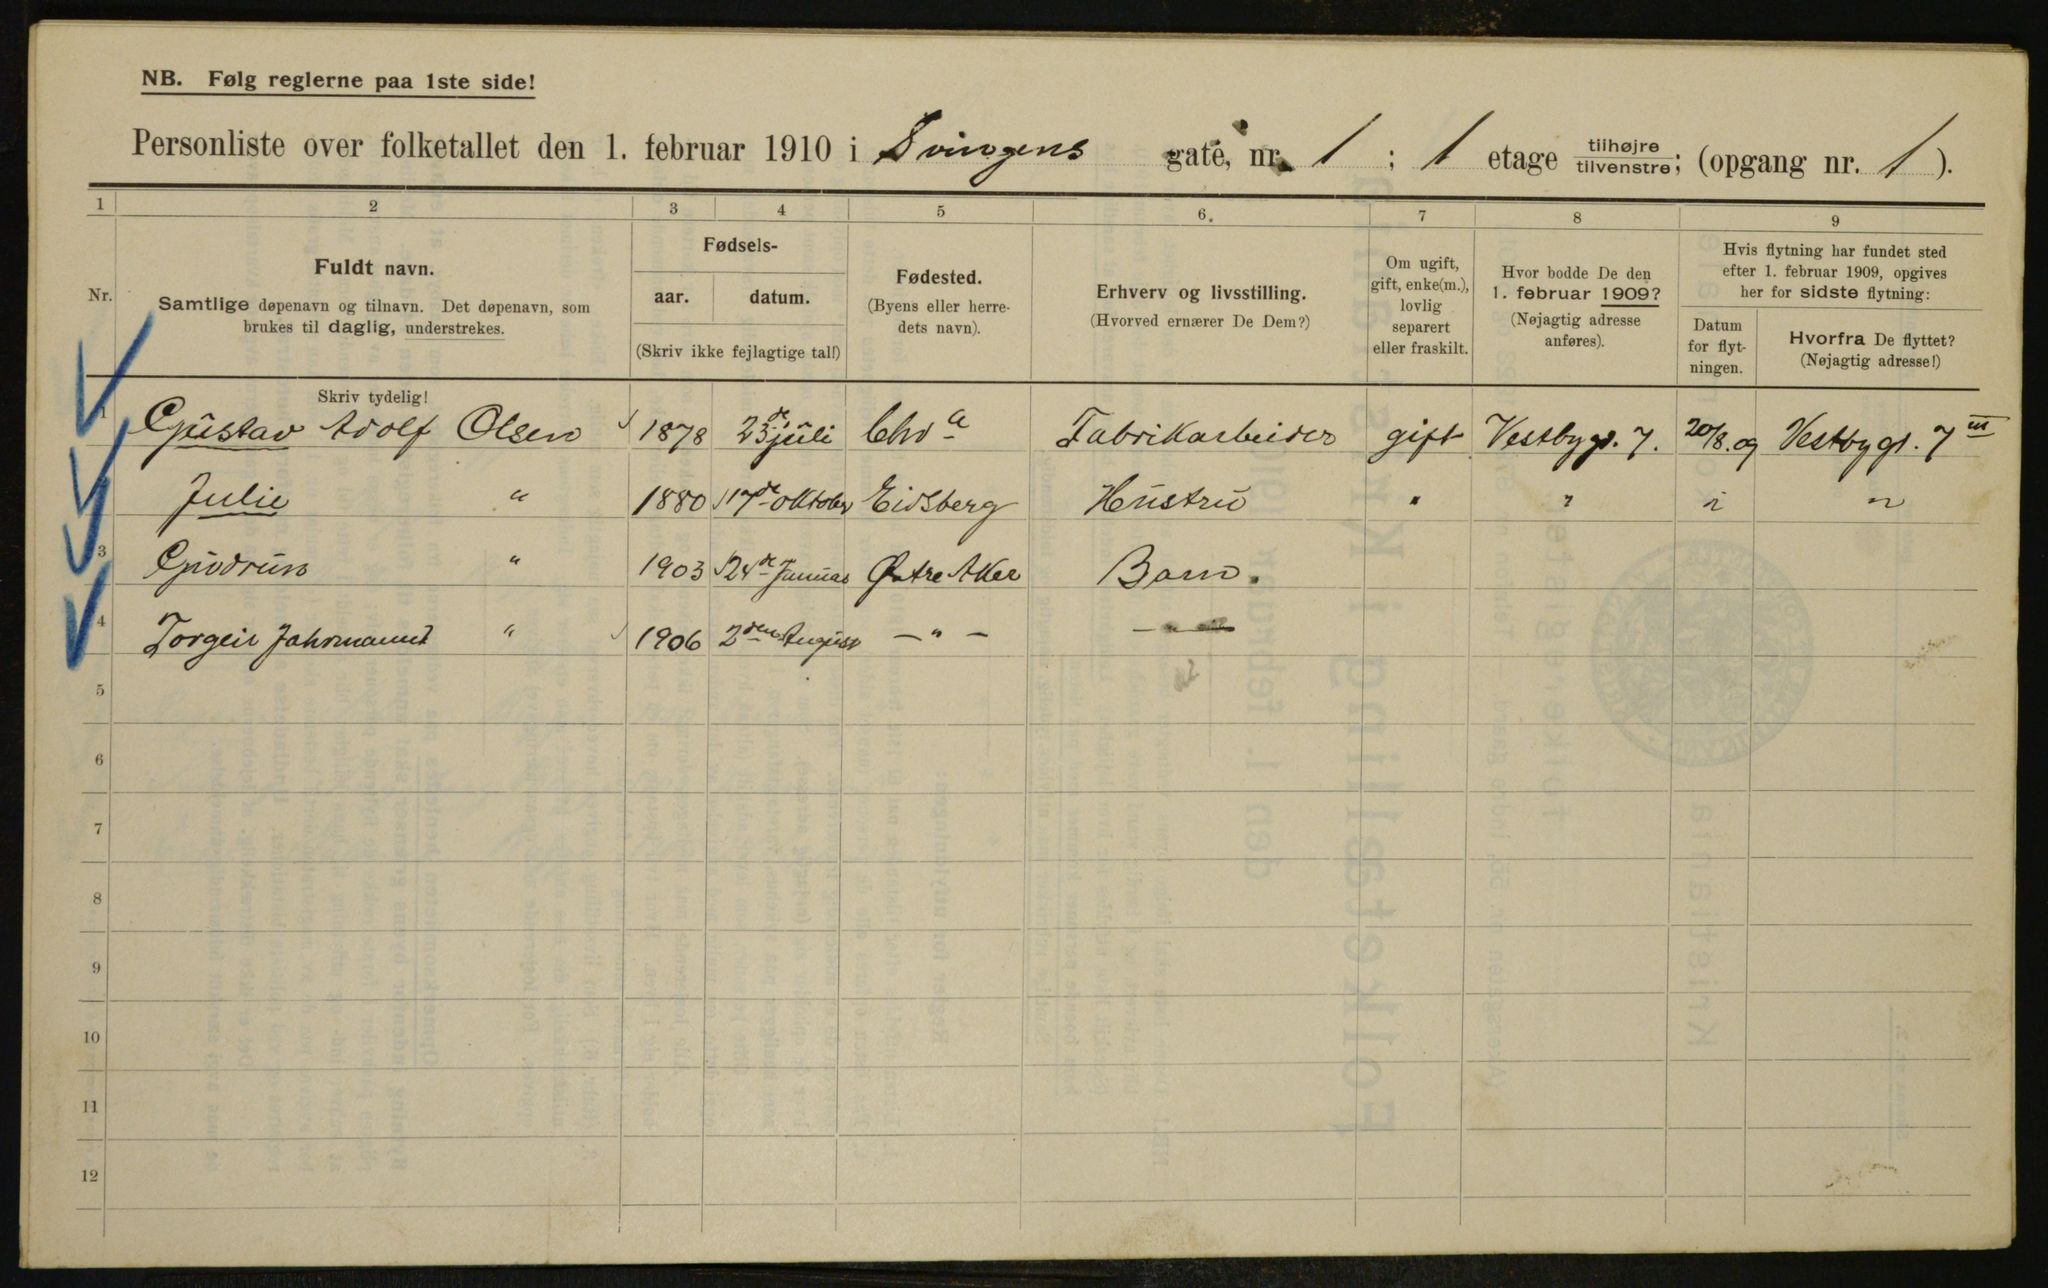 NB. Følg reglerne paa 1ste side!
Personliste over folketallet den 1. februar 1910 i Svingens gate, nr. 1 ; 1 etage tilhøjre tilvenstre; (opgang nr. 1).
1 2 3 4 5 6. 7 8 9
Nr.
Fuldt navn.
Samtlige døpenavn og tilnavn. Det døpenavn, som
brukes til daglig, understrekes.
Skriv tydelig!
Fødsels-
aar. datum.
(Skriv ikke fejlagtige tal!)
Fødested.
(Byens eller herre-
dets navn).
Erhverv og livsstilling.
(Hvorved ernærer De Dem?)
Om ugift,
gift, enke(m.),
lovlig
separert
eller fraskilt.
Hvor bodde De den
1. februar 1909?
(Nøjagtig adresse
anføres).
Hvis flytning har fundet sted
efter 1. februar 1909, opgives
her for sidste flytning:
Datum
for flyt-
ningen.
Hvorfra De flyttet?
(Nøjagtig adresse!)
1 Gustav Adolf Olsen 1878 23de juli Chra Fabrikarbeider gift Vestbygt. 7. 20/8. 09 Vestbygt. 7 III
Julie " 1880 17de oktober Eidsberg Hustru " " " "
3 Gudrun " 1903 24de Januar Østre Aker Barn.
4 Torgeir " 1906 2den August — " — — " —
5
6
7
8
9
10
11
12